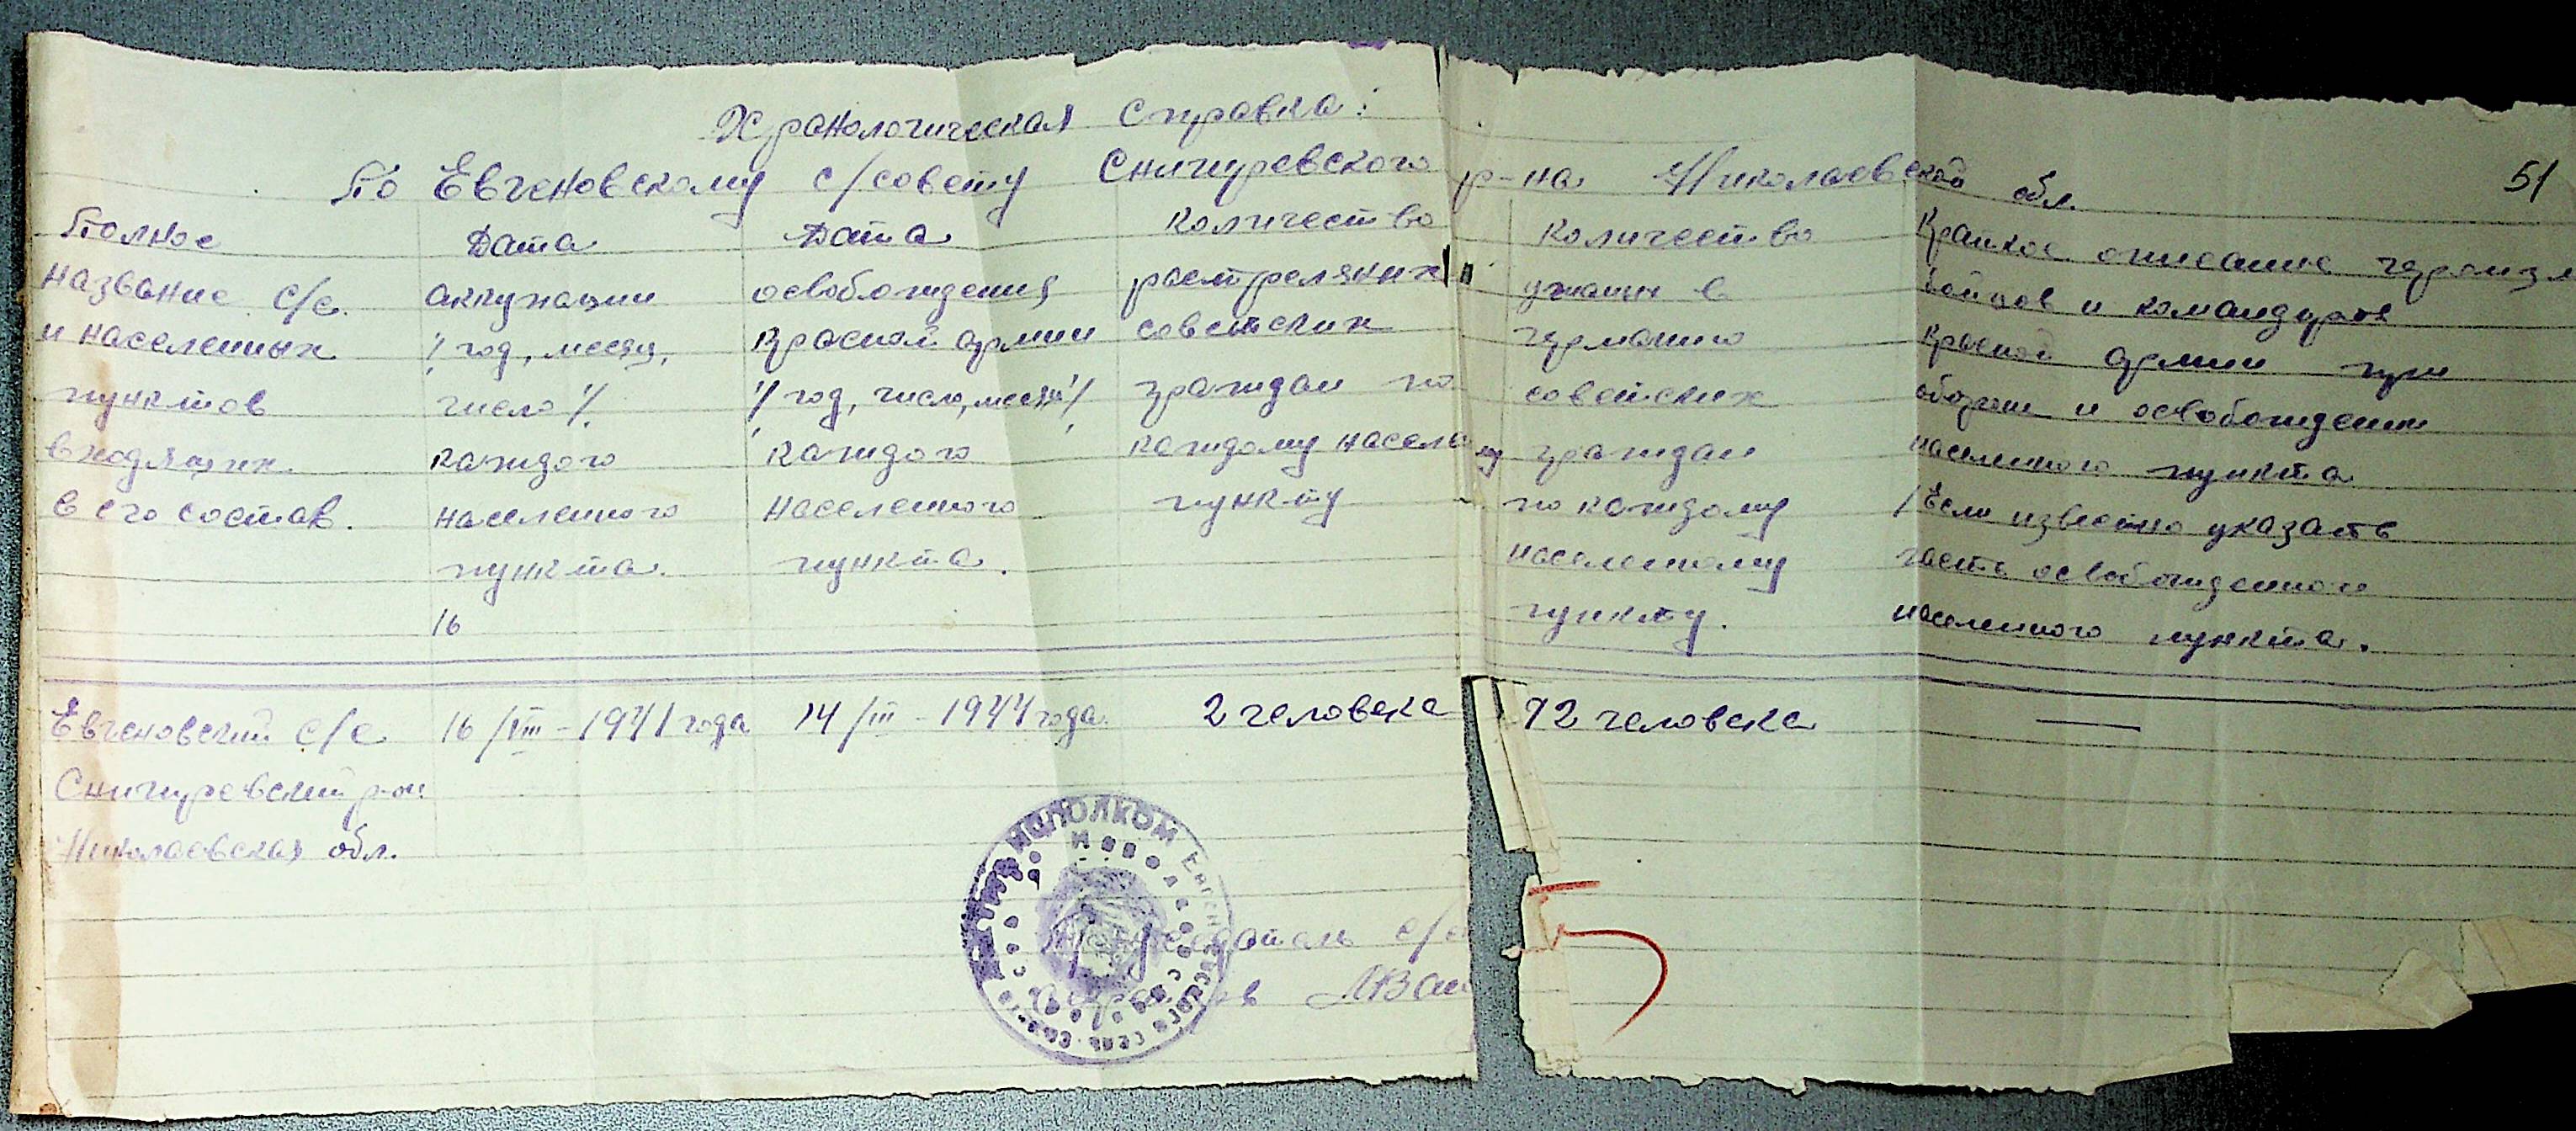 Хранологическая справка:
По Евгеновскому с/совету Снигиревского р-на Николаевской обл.
51
Полное
название с/с.
и населенных
пунктов
входящих
в его состав.
Дата
аккупации
/год, месяц,
число/.
каждого
населенного
пункта.
16
Дата
освобождения
Красной армии
/год, число, месяц/
каждого
населенного
пункта.
Количество
растреляних
советских
граждан по
каждому населе му
пункту
Количество
угнаных в
германию
советских
граждан
по каждому
населенному
пункту.
Краткое описание героизм
бойцов и командиров
Красной армии при
обороне и освобождении
населенного пункта
/Если известно указать
часть освобожденного
населенного пункта.
Евгеновский с/с
Снигиревский р-он
Николаевская обл.
16/VIII-1941 года
14/III-1944 года.
2 человека
72 человека
—
ИСПОЛКОМ
Председатель с/с